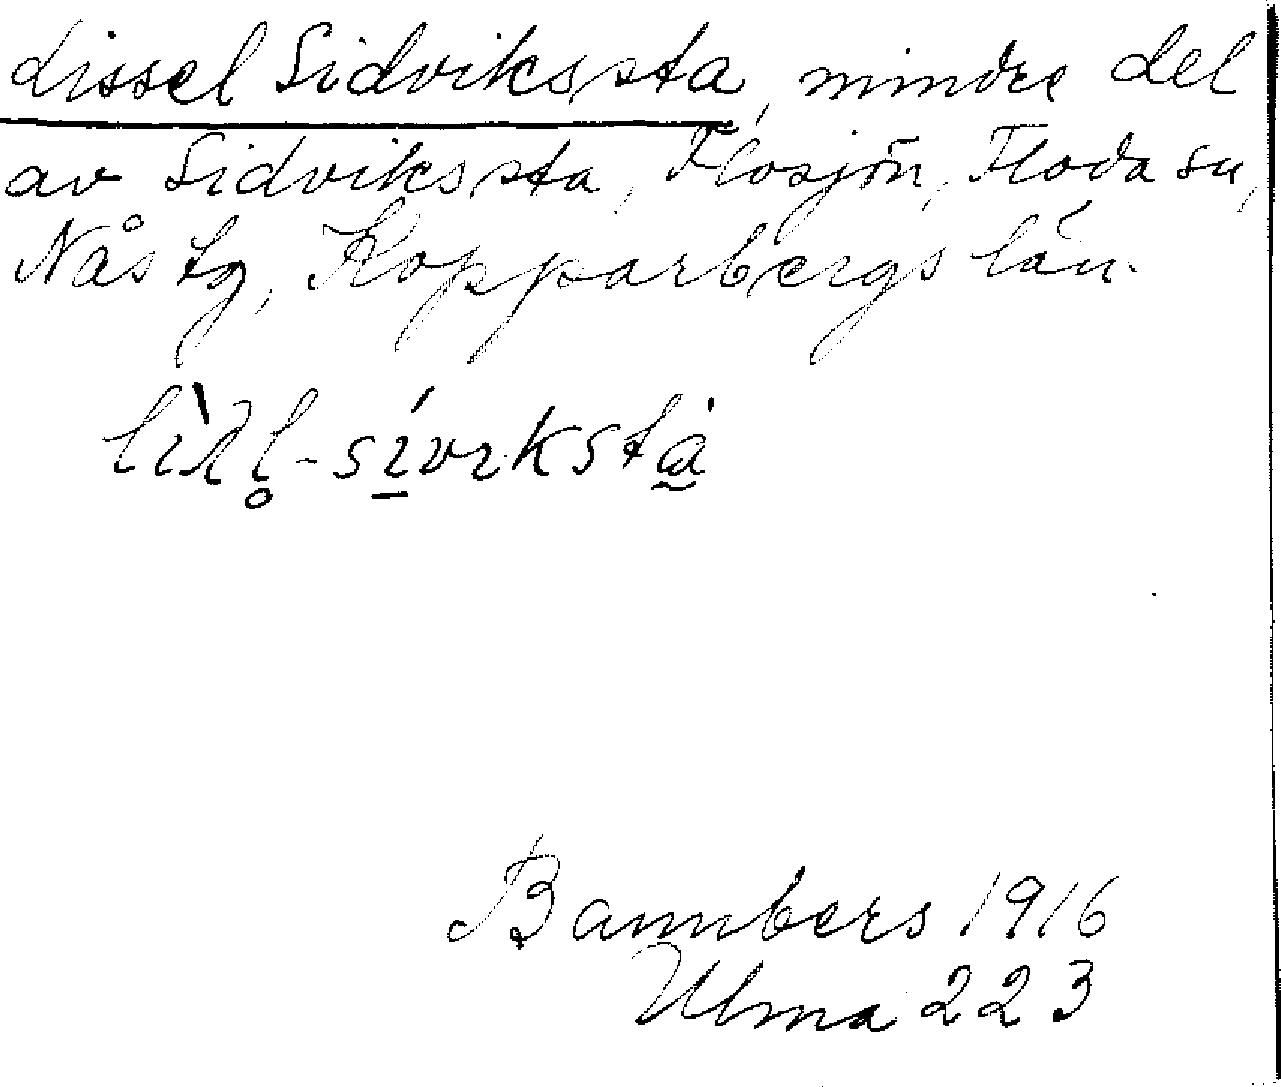 Lissel Sidviksta, mindre del
av Sidviksta, Flosjön, Floda sn,
Nås tg, Kopparbergs län.
Bannbers 1916
Ulma 223